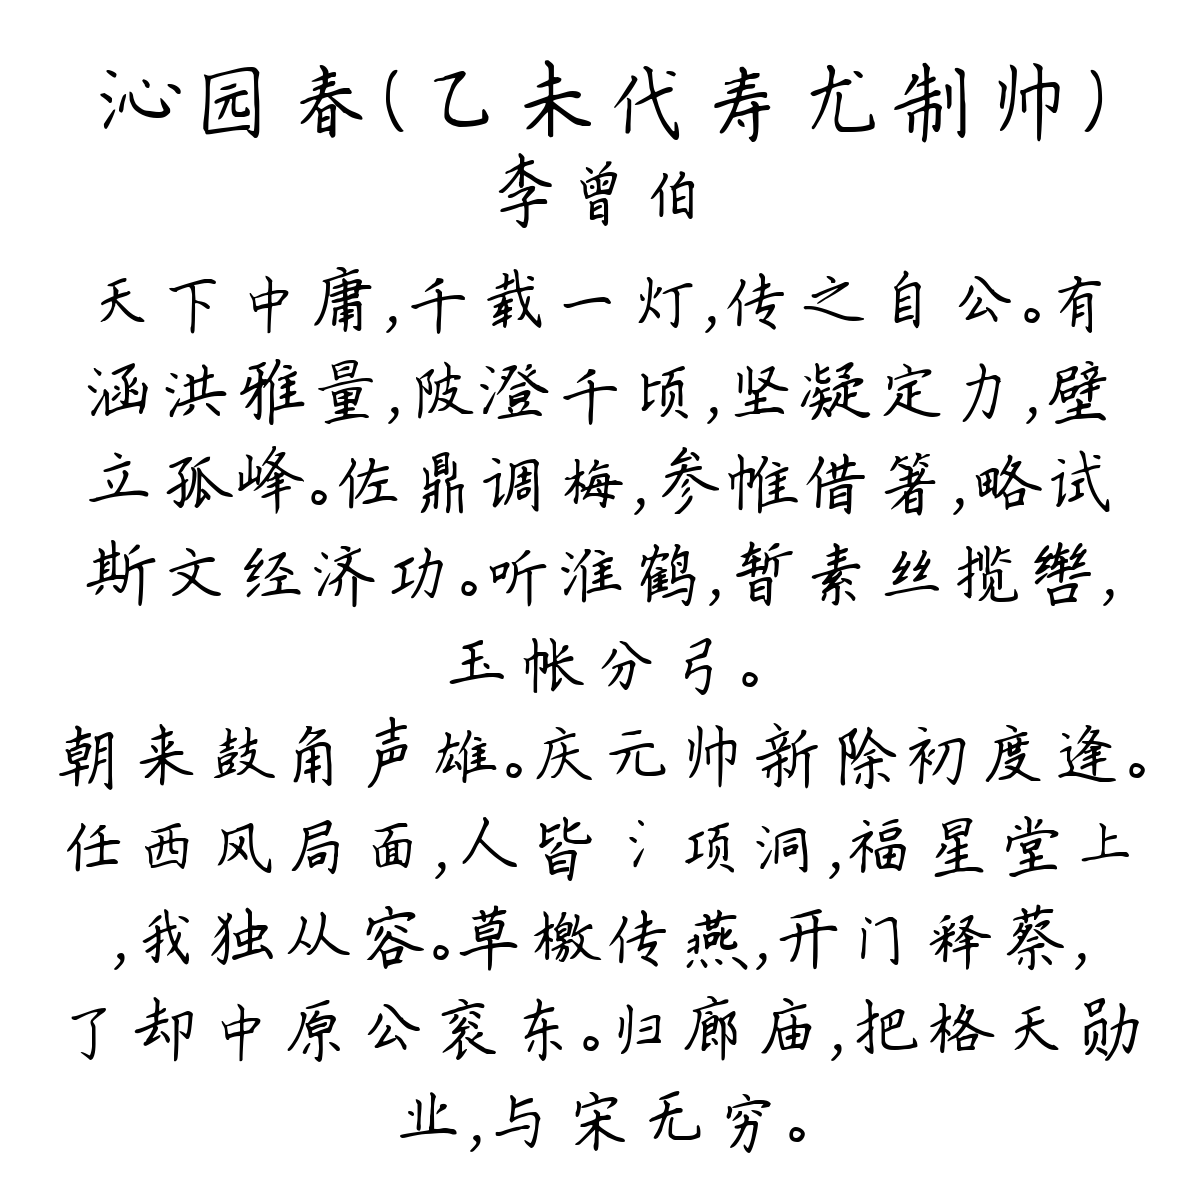 沁园春(乙未代寿尤制帅)
李曾伯
天下中庸,千载一灯,传之自公。有
涵洪雅量,陂澄千顷,坚凝定力,壁
立孤峰。佐鼎调梅,参帷借箸,略试
斯文经济功。听淮鹤,暂素丝揽辔,
玉帐分弓。
朝来鼓角声雄。庆元帅新除初度逢。
任西风局面,人皆氵项洞,福星堂上
,我独从容。草檄传燕,开门释蔡,
了却中原公衮东。归廊庙,把格天勋
业,与宋无穷。